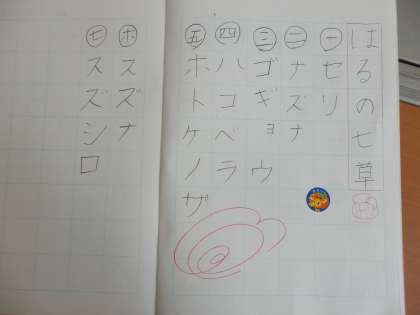 はるの七草
㊀セリ
㊁ナズナ
㊂ゴギョウ
㊃ハコベラ
㊄ホトケノザ
㊅スズナ
㊆スズシロ